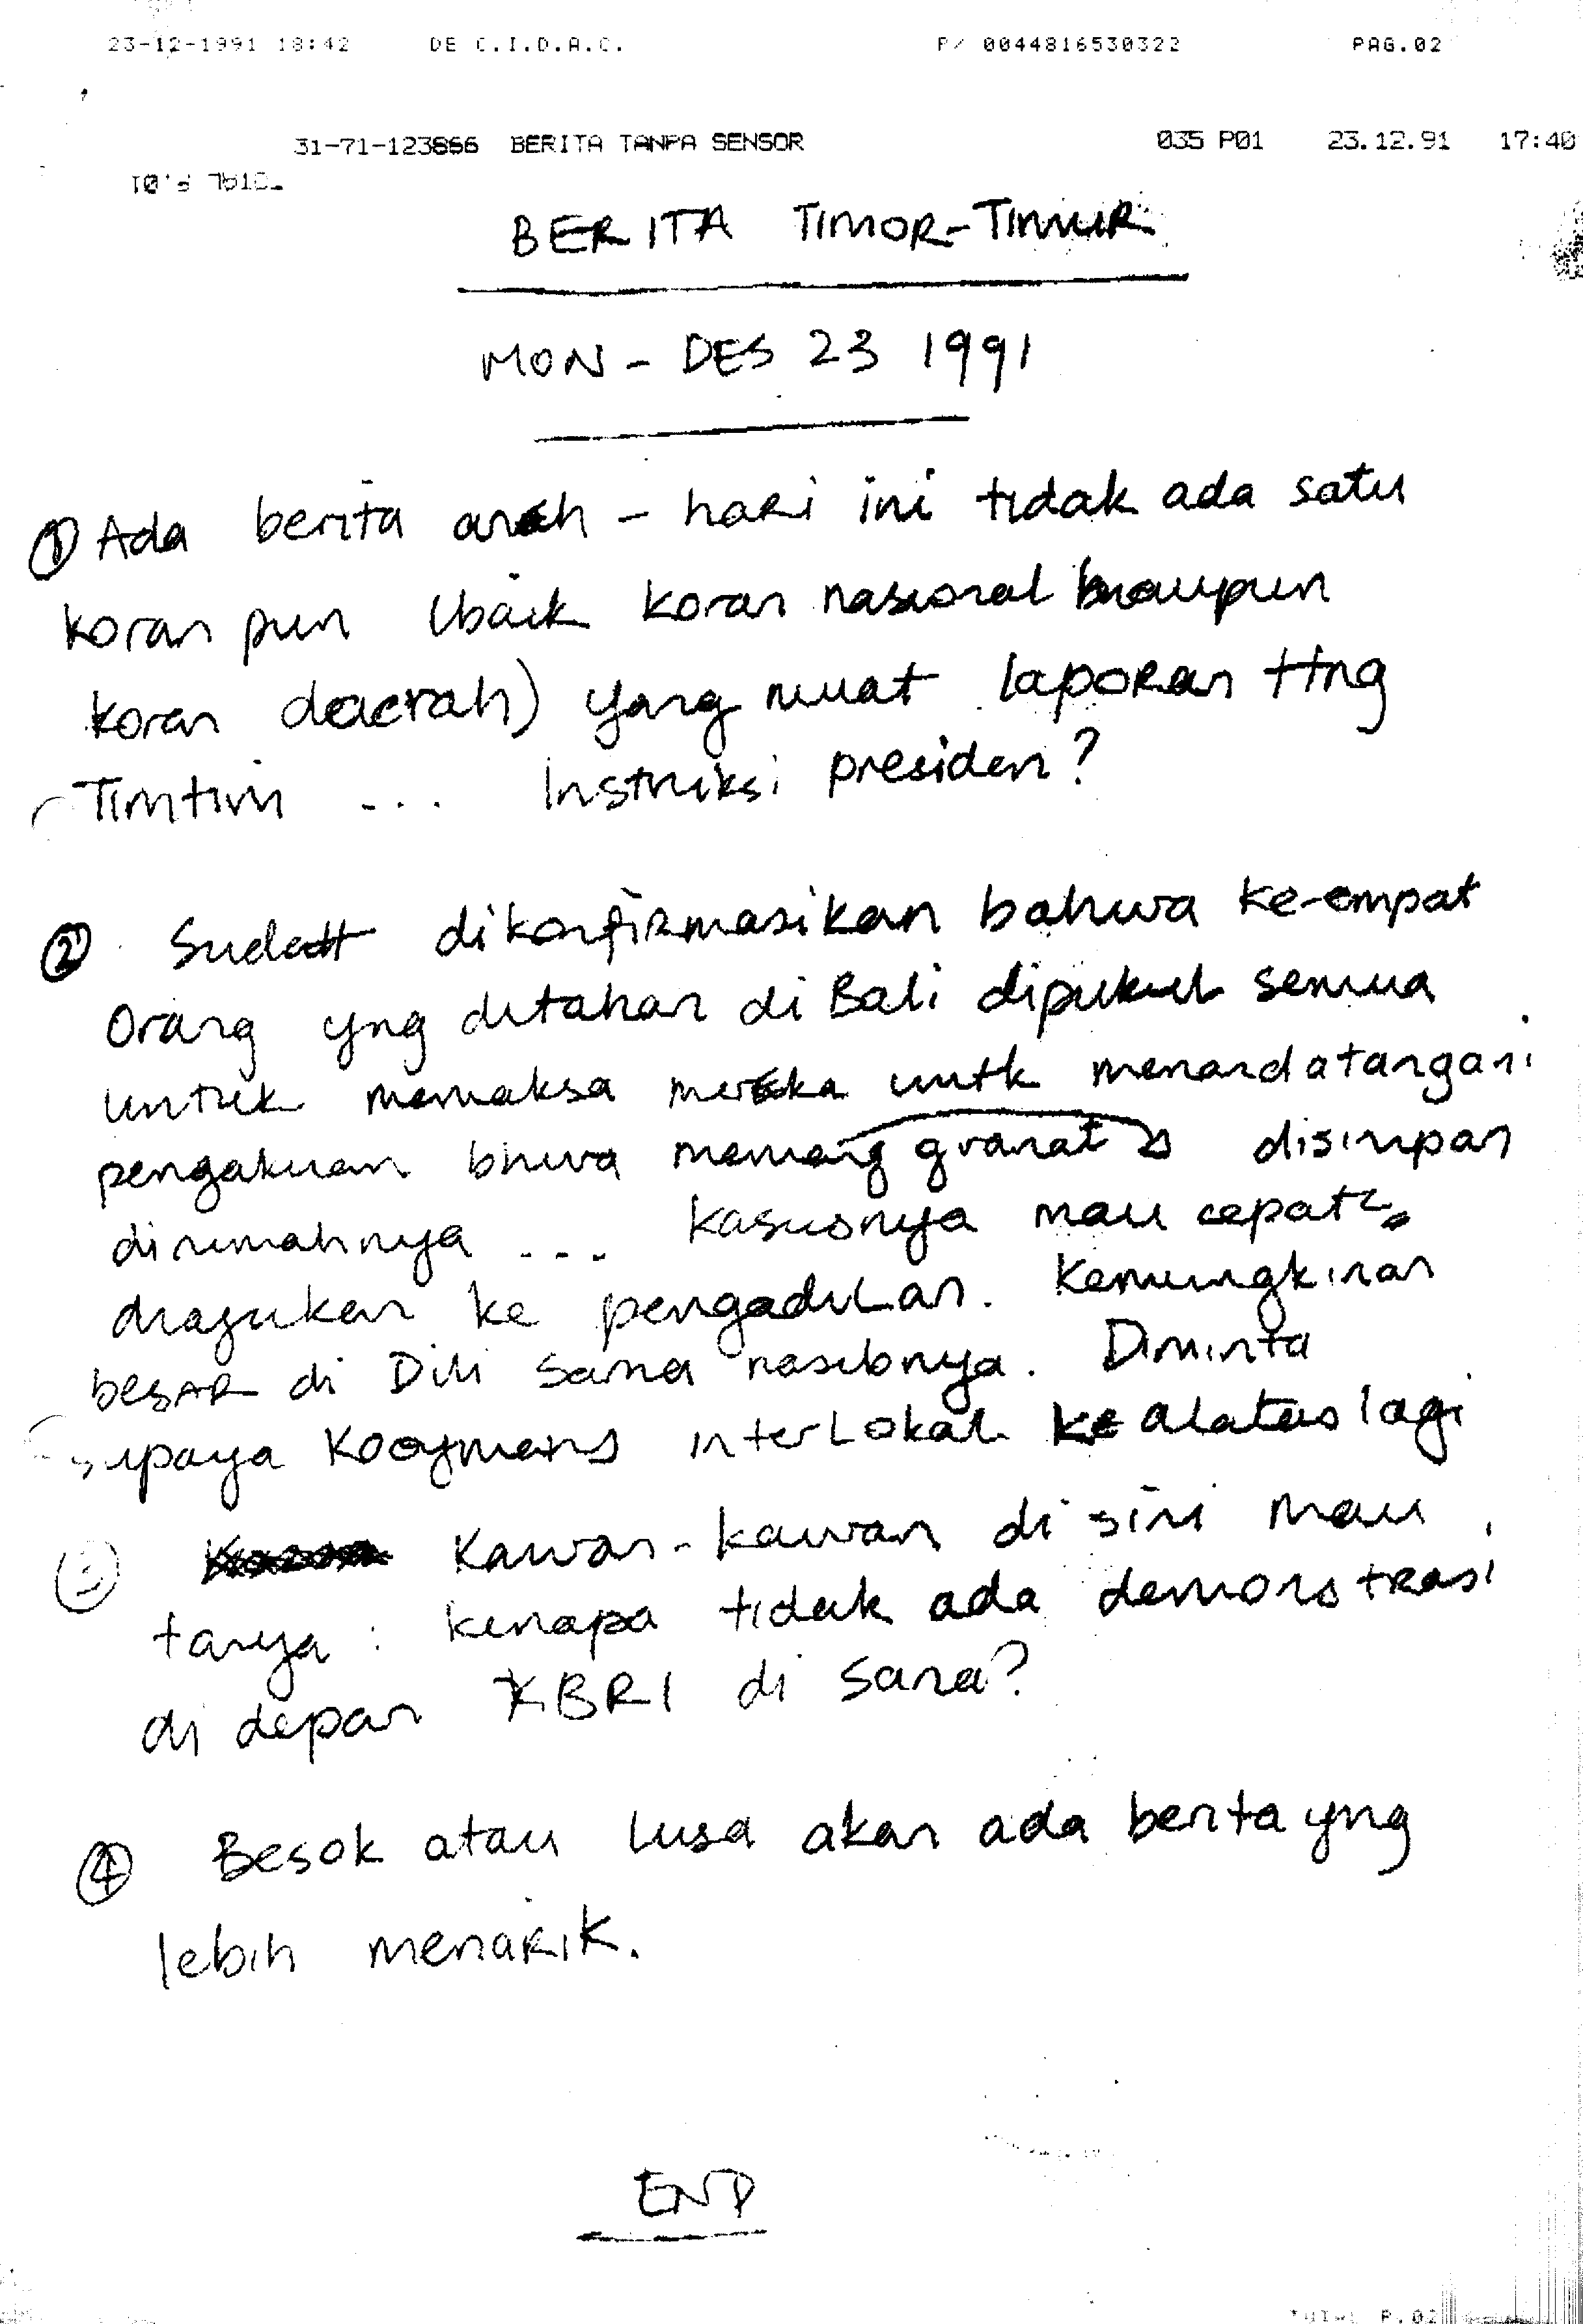 23-12-1991 18:42 DE C.I.D.A.C. P/ 0044816530322 PAG.02
31-71-123866 BERITA TANPA SENSOR 035 P01 23.12.91 17:40
TOTAL P.01
BERITA TIMOR-TIMUR
MON - DES 23 1991
① Ada berita aneh - hari ini tidak ada satu
koran pun (baik koran nasional maupun
koran daerah) yang muat laporan ttng
Timtim ... Instruksi presiden?
② Sudah dikonfirmasikan bahwa ke-empat
orang yng ditahan di Bali dipukul semua
untuk memaksa mereka untk menandatangani
pengakuan bhwa memang granat disimpan
dirumahnya ... Kasusnya mau cepat2
diajukan ke pengadilan. Kemungkinan
besar di Dili sama nasibnya. Diminta
supaya Kooymans interlokal ke alatas lagi
③ Kawan-kawan di sini mau
tanya: kenapa tidak ada demonstrasi
di depan KBRI di sana?
④ Besok atau lusa akan ada berita yng
lebih menarik.
END
TOTAL P.02